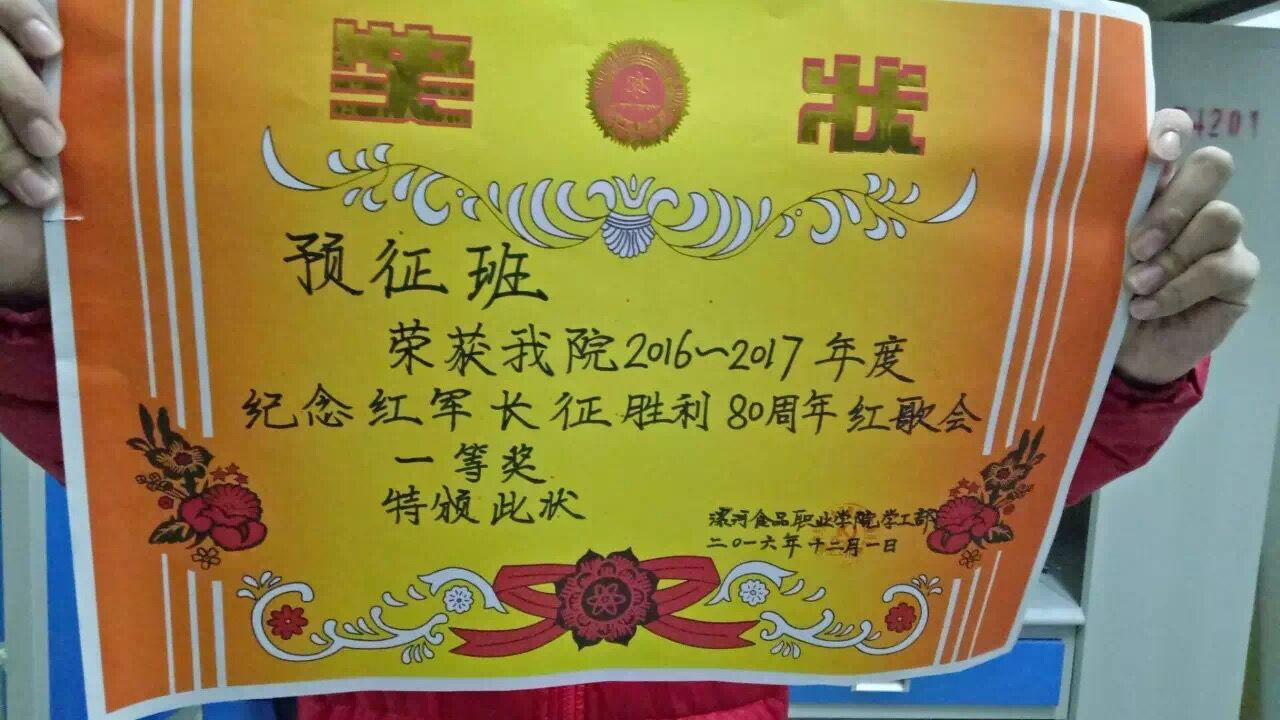 奖状
4201
预征班
荣获我院2016~2017年度
纪念红军长征胜利80周年红歌会
一等奖
特颁此状
漯河食品职业学院学工部
二〇一六年十二月一日